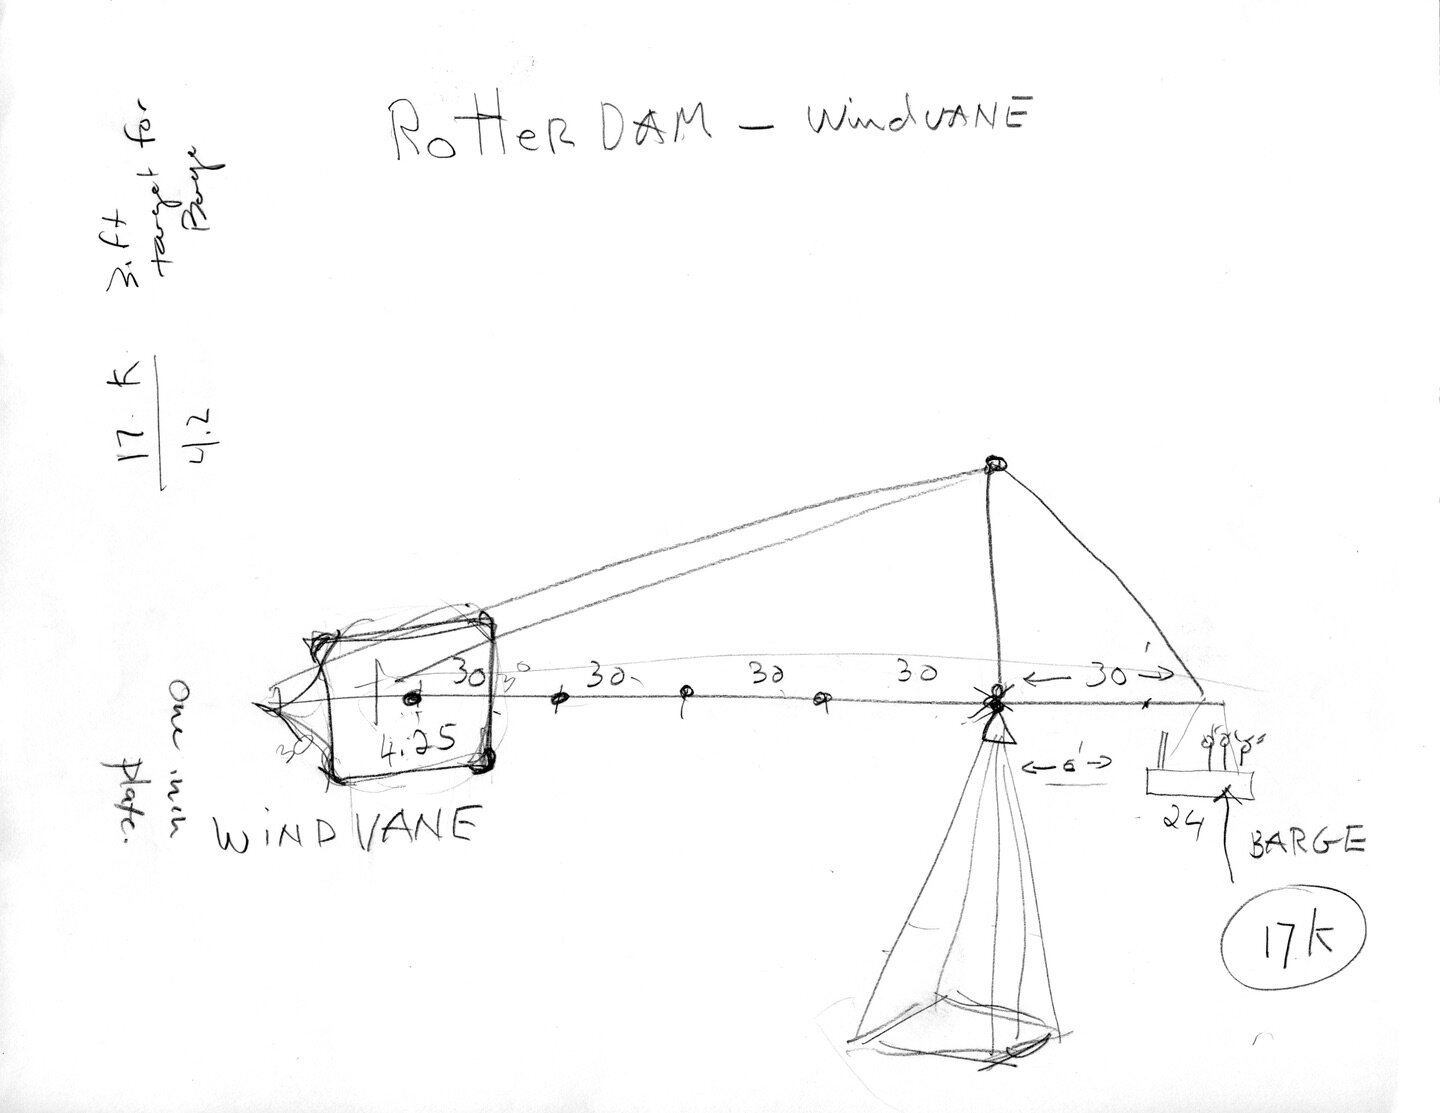 RotteR DAM - WindVANE
3. ft
target for
Barge
17. K
4.2
One inch
Plate.
30
30
30
30
30
← 30' →
30
4.25
WiNDVANE
← 6' →
24
BARGE
17K